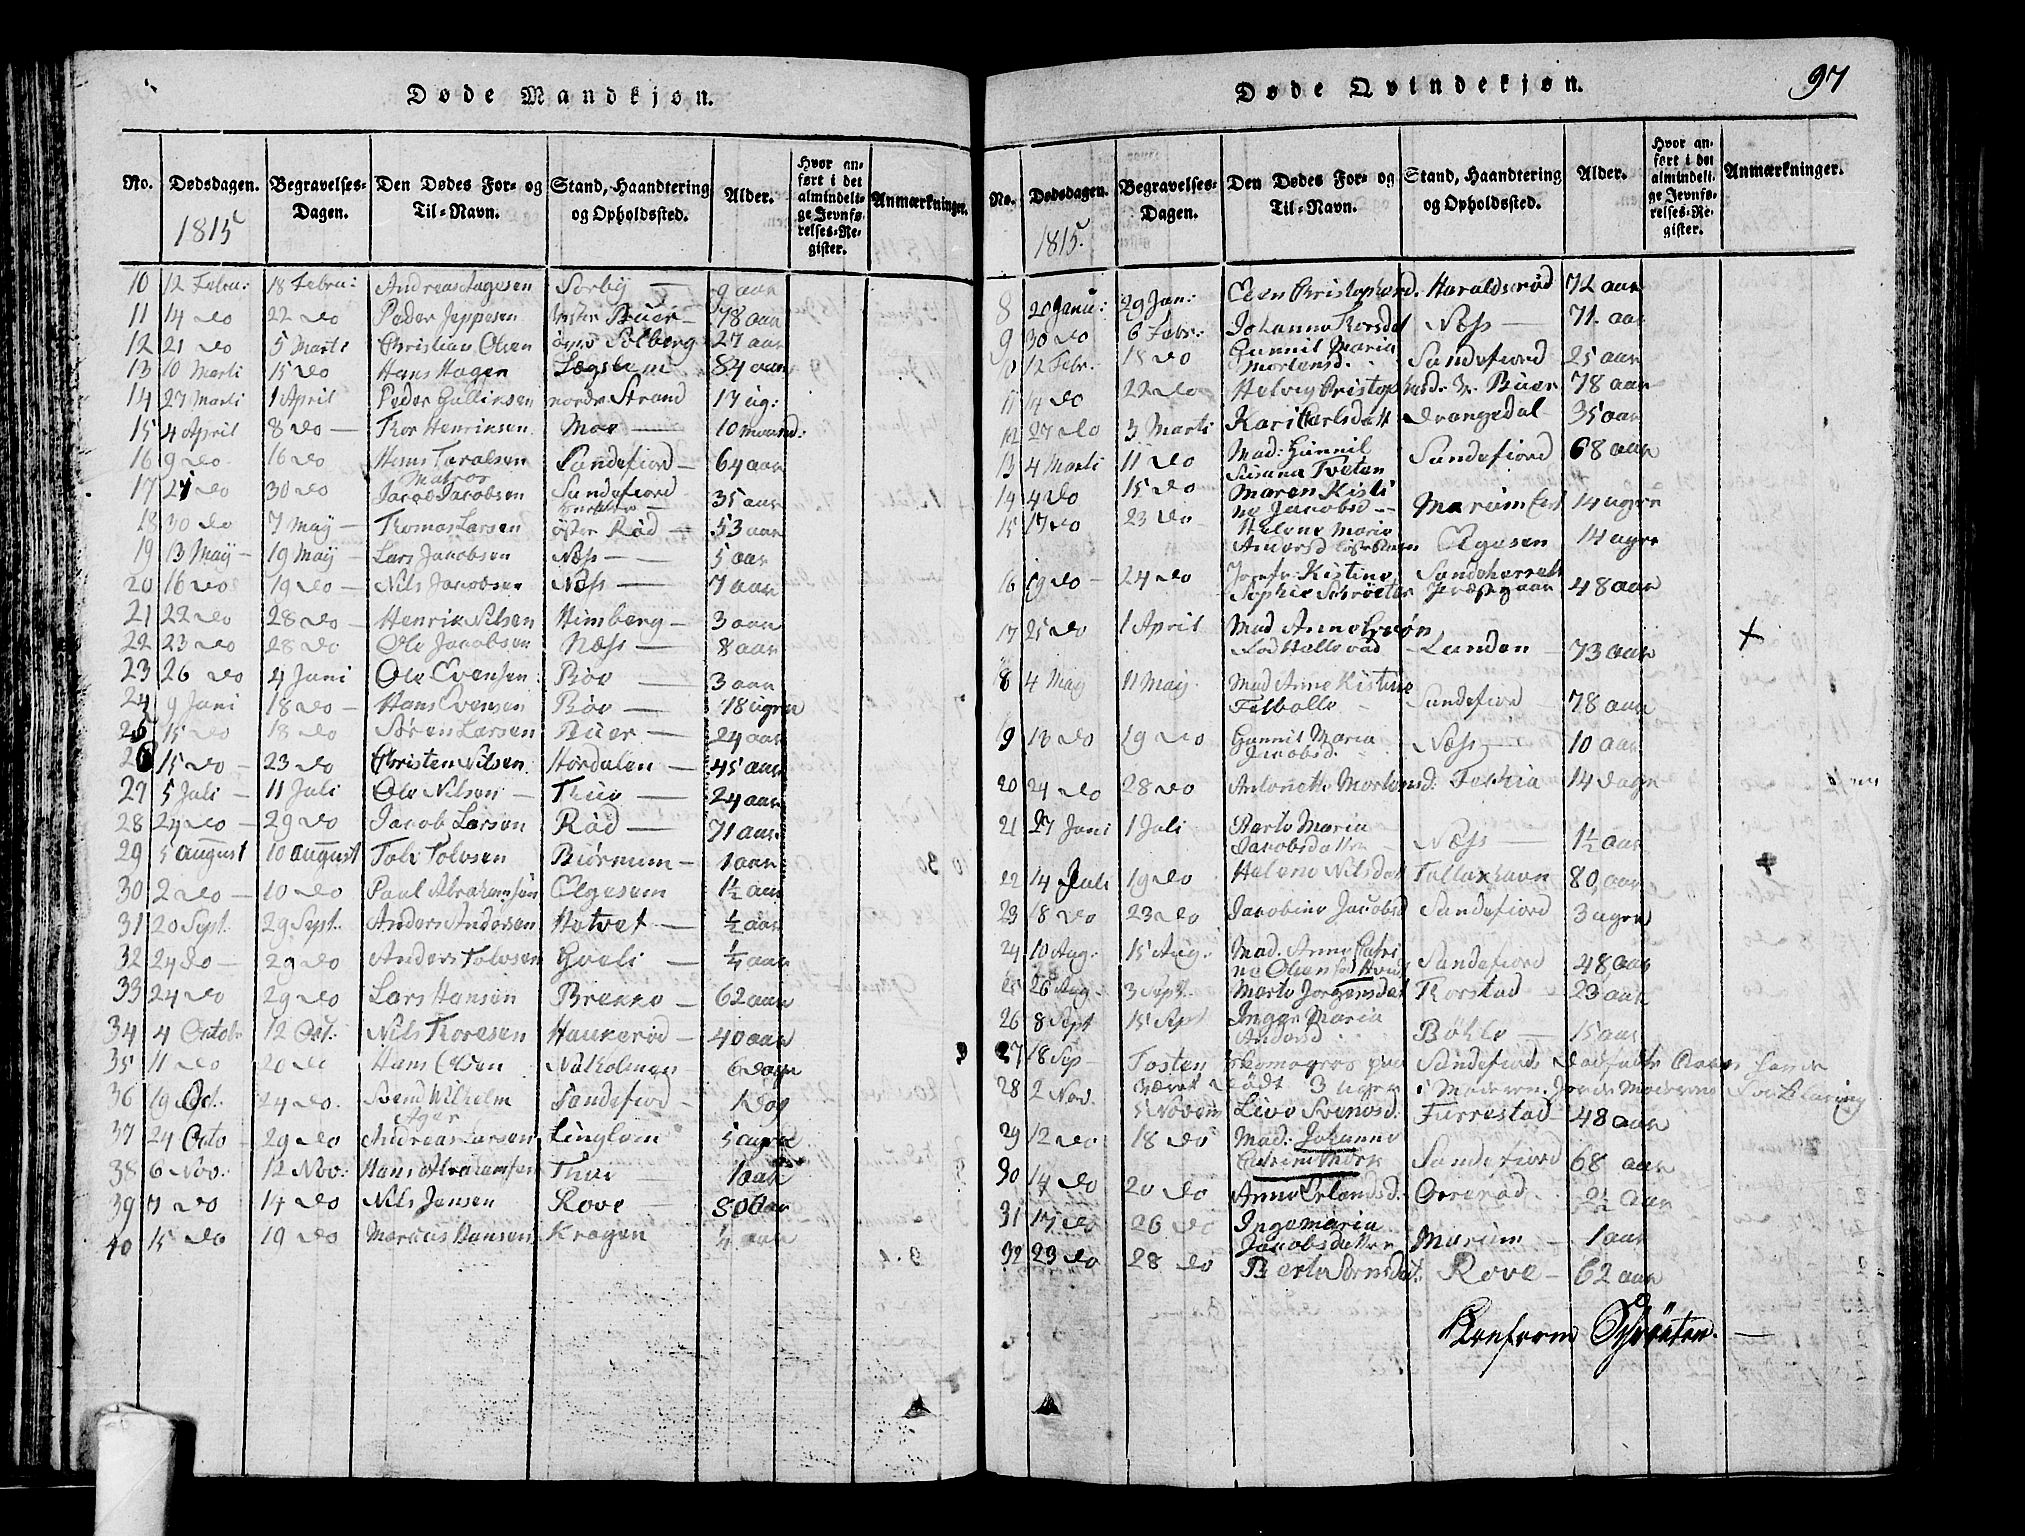 Døde Mandkjøn.
No. Dødsdagen. Begravelses-Dagen. Den Dødes For- og Til-Navn. Stand, Haandtering og Opholdssted. Alder. Hvor anført i det almindelige Jevnførelses-Register. Anmærkninger.
1815
10 12 Febru: 18 Febru: Andreas Aagesen Sørby 9 aar
11 14 do 22 do Peder Jeppesen Vester Buer 78 aar
12 21 do 5 Marti Christian Olsen Solberg 27 aar
13 10 Marti 15 do Hans Hagen 84 aar
14 27 Marti 1 April Peder Gullicksen nordr Strand 17 ug:
15 4 April 8 do Thor Henriksen Moe 10 maaned:
16 9 do 16 do Hans Taralsen Sandefiord 64 aar
Matros
17 24 do 30 do Jacob Jacobsen Sandefiord 35 aar
18 30 do 7 May Thomas Larsen øster Rød 53 aar
19 13 May 19 May Lars Jacobsen Næss 5 aar
20 16 do 19 do Nils Jacobsen Næss 7 aar
21 22 do 28 do Henrik Nilsen Himberg 3 aar
22 23 do 28 do Ole Jacobsen Næss 8 aar
23 26 do 4 Juni Ole Evensen Bøe 3 aar
24 9 Juni 18 do Hans Evensen Bøe 18 uger
25 15 do 18 do Søren Larsen Buer 24 aar
26 15 do 23 do Christen Nilsen Hørdalen 45 aar
27 5 Juli 11 Juli Ole Nilsen Thue 24 aar
28 24 do 29 do Jacob Larsen Rød 71 aar
29 5 august 10 august Tolv Tolvsen Biørnum 1 aar
30 2 do 10 do Paul Abrahamsen Elgesem 1½ aar
31 20 Sept. 29 Sept. Anders Andersen Helvet ½ aar
32 24 do 29 do Anders Tolvsen Hveli ¼ aar
33 24 do 29 do Lars Hansen Brekke 62 aar
34 4 Octob 12 Oct. Nils Thoresen Haukerød 40 aar
35 11 do 20 do Hans Olsen Nalholmen 6 dage
36 19 Oct. 24 do Svend Wilhelm Sandefiord 1 dag
Ager
37 24 Octo 29 do Andreas Larsen Lingelem 5 uger
38 6 Nov. 12 Nov: Hans Abrahamsen Thue 1 aar
39 7 do 14 do Nils Jensen Rove 80 aar
40 15 do 19 do Marcus Hansen Kragen ¼ aar
Døde Qvindekjøn.
97
No. Dødsdagen. Begravelses-Dagen. Den Dødes For- og Til-Navn. Stand, Haandtering og Opholdssted. Alder. Hvor anført i det almindelige Jevnførelses-Register. Anmærkninger.
1815.
8 20 Janu: 29 Jan: Eeen Christophersd. Haraldsrød 72 aar
9 30 do 6 Febr: Johanna Thorsdat Næss 71 aar
10 12 Febr. 18 do Gunnil Maria Mortensd. Sandefiord 25 aar
11 14 do 22 do Helvig Christophersdr V. Buer 78 aar
12 27 do 3 Marti Kari Carlsdatt Drangedal 35 aar
13 4 Marti 11 do Mad: Gunnil Susana Tveten Sandefiord 68 aar
14 4 do 15 do Maren Kistine Jacobsd Marium 14 uger
15 17 do 23 do Helene Maria Andersd Elgesem 14 uger
16 19 do 24 do Jomfr. Kistine Sophie Schrøeter Sandeherred Præstegaar 48 aar
17 25 do 1 April Mad Anne Lunden 73 aar +
8 4 May 11 May Mad Anne Kistine Felbolle Sandefiord 78 aar
9 13 do 19 do Gunnil Maria Jacobsd. Næss 10 aar
20 24 do 28 do Antonette Mortensd: 14 dage
21 27 Juni 1 Juli Barte Maria Jacobsdatter Næss 1½ aar
22 14 Juli 19 do Helene Nilsdat 80 aar
23 18 do 23 do Jacobine Jacobsd Sandefiord 3 uger
24 10 Aug: 15 Aug: Mad. Anne Catrine Olsen fød Hvid Sandefiord 48 aar
25 26 Aug. 3 Sept. Marte Jørgensdat Thorstad 23 aar
26 8 Sept 15 Sept Inger Maria Andersd Bøhle 15 aar
27 18 Sep Sandefiord
28 2 Nov. 5 Novem Live Svensd. Furrestad 48 aar
været død 3 uger i Moderen Jorde Moderens Forklaring
29 12 do 18 do Mad. Johanne Catrine Mørk Sandefiord 68 aar
30 14 do 20 do Anne Erlandsd. 2½ aar
31 17 do 26 do Ingemaria Jacobsdatter Marium 1 aar
32 23 do 28 do Berte Sørnsdat. Rove 62 aar
Conform Schrøeter.